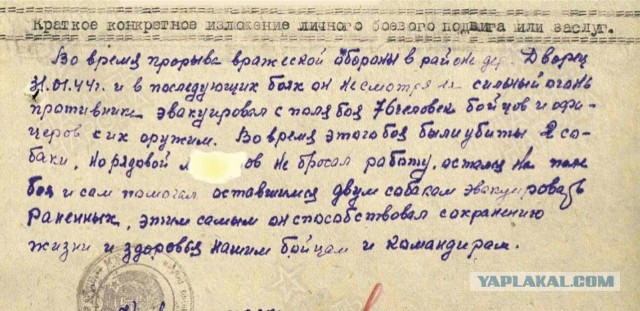 Краткое конкретное изложение личного боевого подвига или заслуг.
Во время прорыва вражеской обороны в районе дер. Дворец
31.01.44г. и в последующих боях он несмотря на сильный огонь
противника эвакуировал с поля боя 76 человек бойцов и офи-
церов с их оружием. Во время этого боя были убиты 2 со-
баки, но рядовой М ов не бросал работу, остался на поле
боя и сам помогал оставшимся двум собакам эвакуировать
раненных, этим самым он способствовал сохранению
жизни и здоровья нашим бойцам и командирам.
YAPLAKAL.COM